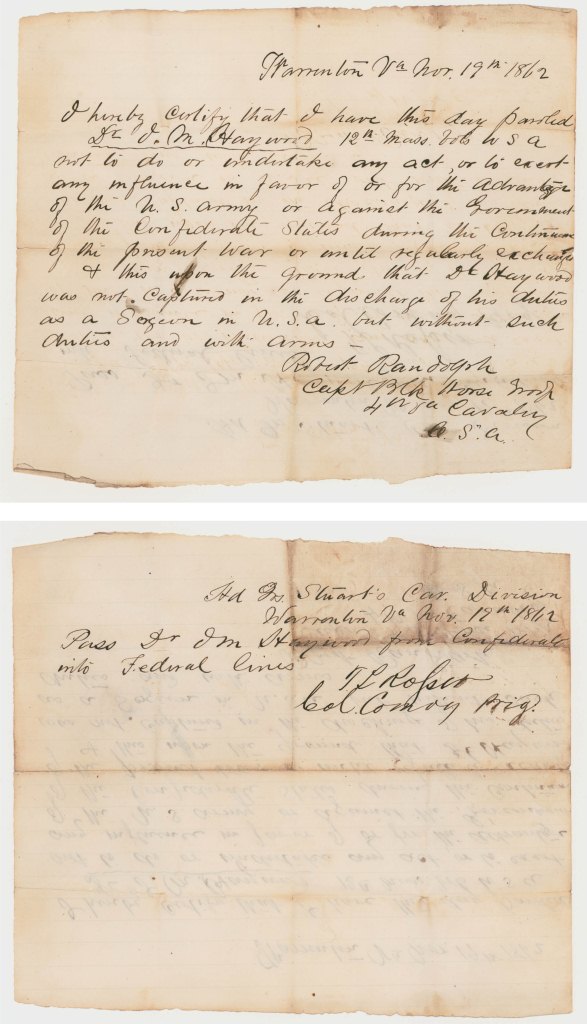 Warrenton Va Nov. 19th 1862
I hereby certify that I have this day paroled
Dr J. M. Haywood 12th Mass. Vols U S A
not to do or undertake any act, or to exert
any influence in favor of or for the advantage
of the U. S. army or against the Government
of the Confederate States during the Continuance
of the present war or until regularly exchanged
& this upon the ground that Dr Haywood
was not captured in the discharge of his duties
as a Sergeon in U.S.a. but without such
duties and with arms –
Robert Randolph
Capt Blk Horse Troop
4th Va Cavalry
C. S. a.
Hd Qrs Stuart's Cav. Division
Warrenton Va Nov. 19th 1862
Pass Dr J M Haywood from Confederate
into Federal lines
T L Rosser
Col. Comd'g Brig.